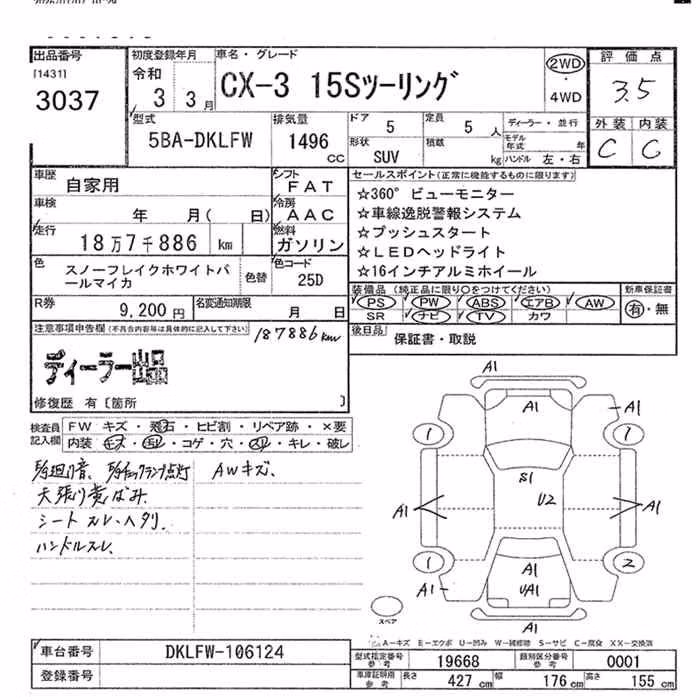 出品番号
[1431]
3037
初度登録年月
令和
3 3月
車名・グレード
CX-3 15Sツーリング
2WD
・
4WD
評価点
3.5
外装 内装
C C
型式
5BA-DKLFW
排気量
1496
CC
ドア
5
定員
5 人
形状
SUV
積載
kg
ディーラー・並行
モデル年式 年
ハンドル 左・右
車歴
自家用
車検
年 月( 日)
走行
18万7千886 km
色
スノーフレイクホワイトパールマイカ
色替
シフト
FAT
冷房
AAC
燃料
ガソリン
色コード
25D
セールスポイント(正常に機能するものに限ります)
☆360° ビューモニター
☆車線逸脱警報システム
☆プッシュスタート
☆LEDヘッドライト
☆16インチアルミホイール
R券
9,200円
名変通知期限
月 日
装備品 (純正品に限り○をつけてください)
PS PW ABS エアB AW
SR ナビ TV カワ
新車保証書
有・無
後日品
保証書・取説
注意事項申告欄(不具合内容等は具体的に記入して下さい)
187886km
ディーラー出品
修復歴 有〔箇所 〕
検査員記入欄
FW キズ・飛石・ヒビ割・リペア跡・×要
内装 キズ・汚れ・コゲ・穴・スレ・キレ・破レ
天張り黄ばみ.
シート スレ、ヘタリ.
ハンドルスレ、
AWキズ、
A1
A1
A1
1
1
S1
U2
A1
A1
1
2
A1
A1
UA1
A1
スペア
A-キズ E-エクボ U-凹み W-補修跡 S-サビ C-腐食 XX-交換済
車台番号
DKLFW-106124
登録番号
型式指定番号
参考
19668
類別区分番号
参考
0001
車庫証明用
参考
長さ 427 cm
幅 176 cm
高さ 155 cm